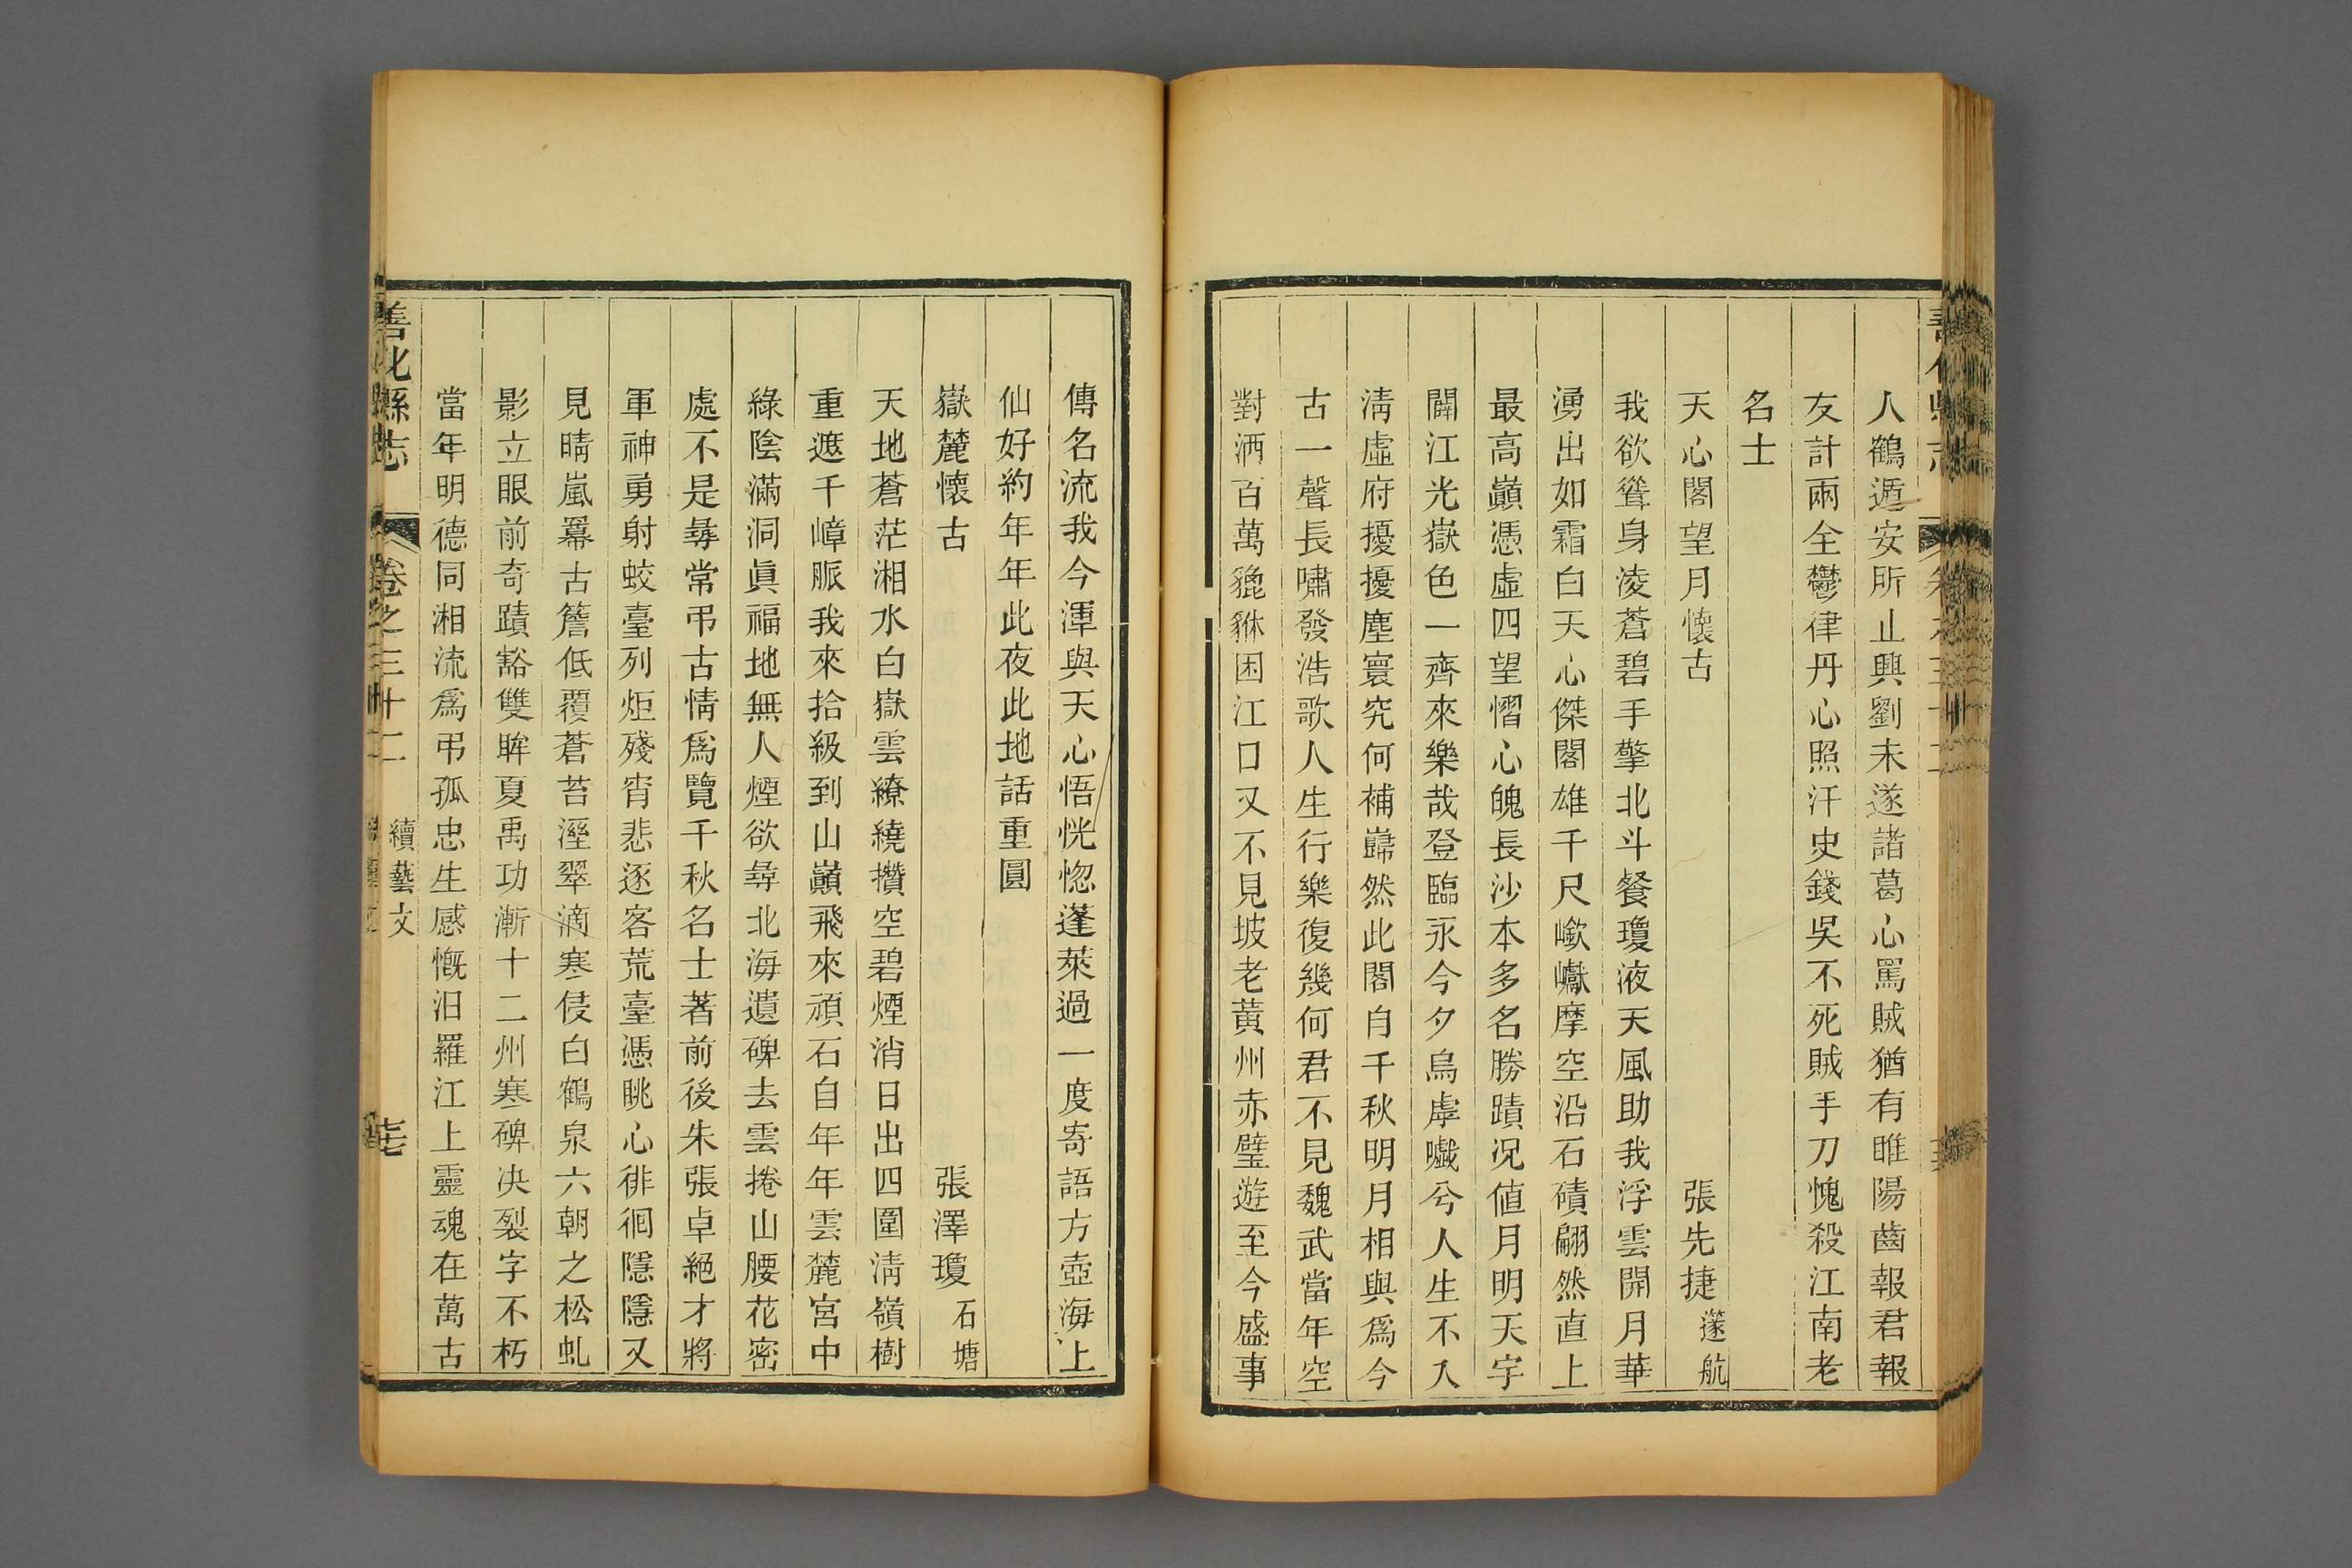 人鶴遁安所止興劉未遂諸葛心罵賊猶有睢陽齒報君報
友計兩全鬱律丹心照汗史錢吳不死賊手刀愧殺江南老
名士
天心閣望月懷古 張先捷 籧航
我欲聳身凌蒼碧手擎北斗餐瓊液天風助我浮雲開月華
湧出如霜白天心傑閣雄千尺嶔巇摩空沿石磧翩然直上
最高巔憑虛四望慴心魄長沙本多名勝蹟况値月明天宇
闢江光嶽色一齊來樂哉登臨永今夕烏虖嚱兮人生不入
淸虛府擾擾塵寰究何補巋然此閣自千秋明月相與爲今
古一聲長嘯發浩歌人生行樂復幾何君不見魏武當年空
對酒百萬貔貅困江口又不見坡老黃州赤壁遊至今盛事
傳名流我今渾與天心悟恍惚蓬萊過一度寄語方壺海上
仙好約年年此夜此地話重圓
嶽麓懷古 張澤瓊 石塘
天地蒼茫湘水白嶽雲繚繞攢空碧煙消日出四圍淸嶺樹
重遮千嶂脈我來拾級到山巔飛來頑石自年年雲麓宮中
綠陰滿洞眞福地無人煙欲尋北海遺碑去雲捲山腰花密
處不是尋常弔古情爲覽千秋名士著前後朱張卓絕才將
軍神勇射蛟臺列炬殘宵悲逐客荒臺憑眺心徘徊隱隱又
見晴嵐羃古簷低覆蒼苔溼翠滴寒侵白鶴泉六朝之松虬
影立眼前奇蹟豁雙眸夏禹功漸十二州寒碑决裂字不朽
當年明德同湘流爲弔孤忠生感慨汨羅江上靈魂在萬古
善化縣志 卷之三十二 續藝文 七